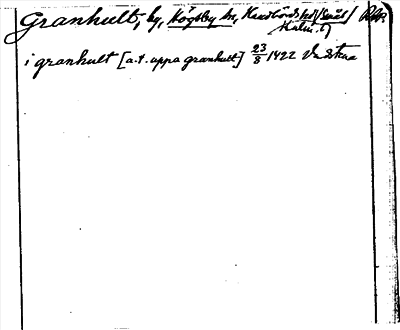 Granhult, by, Högsby sn, Handbörds hd /Smål/ RAp.
Kalm. l.
i granhult [a.t. uppa granhult] 23/8 1422 Vadstena